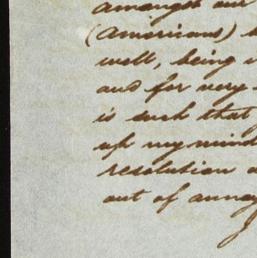 amongst our
(Americans)
well, being
and for very
is such that
up my mind
resolution
out of annoy